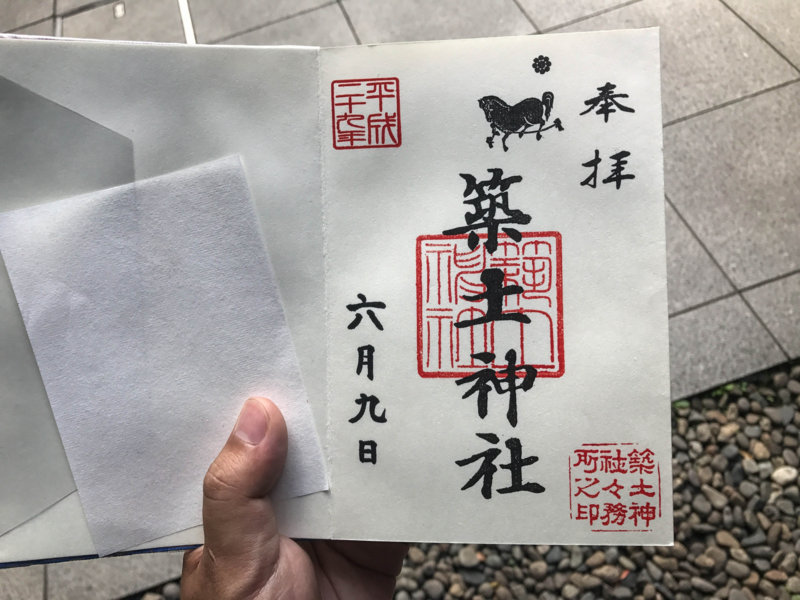 奉拝
築土神社
築土神社
平成二十九年
六月九日
築土神社々務所之印